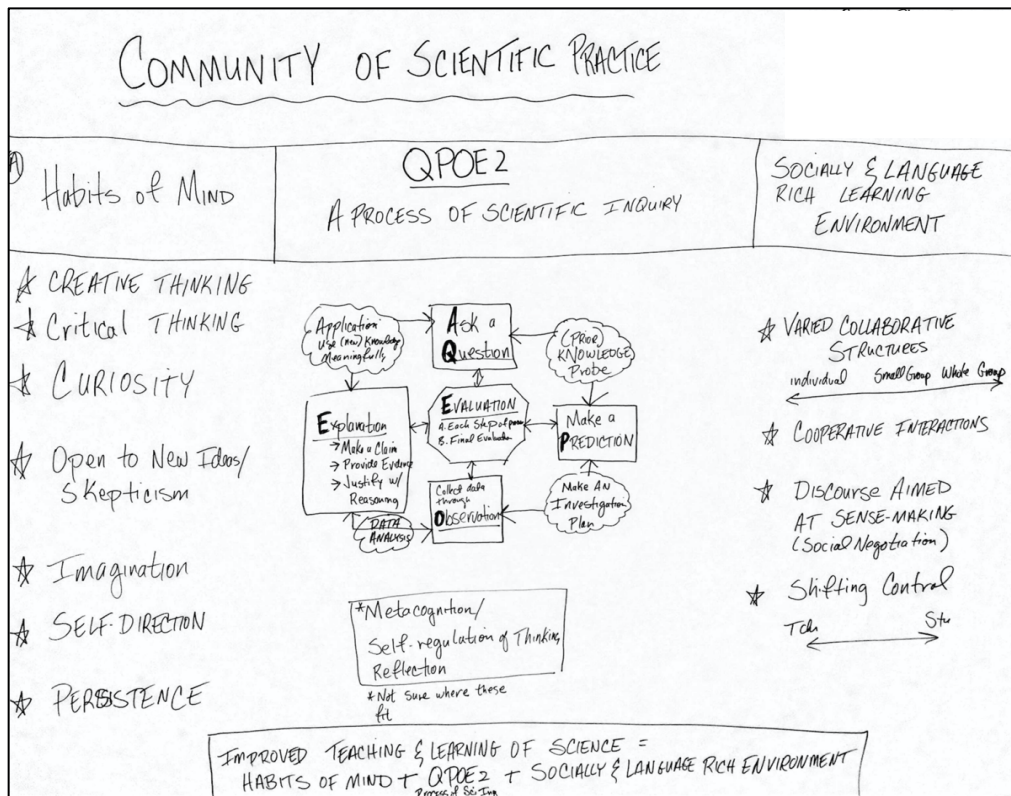 COMMUNITY OF SCIENTIFIC PRACTICE
A
Habits of MIND
QPOE2
A PROCESS OF SCIENTIFIC INQUIRY
SOCIALLY & LANGUAGE
RICH LEARNING
ENVIRONMENT
CREATIVE THINKING
Critical THINKING
CURIOSITY
Open to New Ideas/
Skepticism
Imagination
SELF-DIRECTION
PERSISTENCE
Application
Use (new) Knowledge
Meaningfully
Ask a
Question
(PRIOR)
KNOWLEDGE
Probe
Explanation
→ Make a Claim
→ Provide Evidence
→ Justify w/
Reasoning
EVALUATION
A. Each Step of
B. Final Evaluation
Make a
PREDICTION
Collect data
through
Observation
Make AN
Investigation
Plan
DATA
ANALYSIS
*Metacognition/
Self-regulation of Thinking
Reflection
*Not sure where these
fit
VARIED COLLABORATIVE
STRUCTURES
individual Small Group Whole Group
COOPERATIVE INTERACTIONS
DISCOURSE AIMED
AT SENSE-MAKING
(Social Negotiation)
Shifting Control
Tchr Stu
IMPROVED TEACHING & LEARNING OF SCIENCE =
HABITS OF MIND + QPOE2 + SOCIALLY & LANGUAGE RICH ENVIRONMENT
Process of Sci Inq